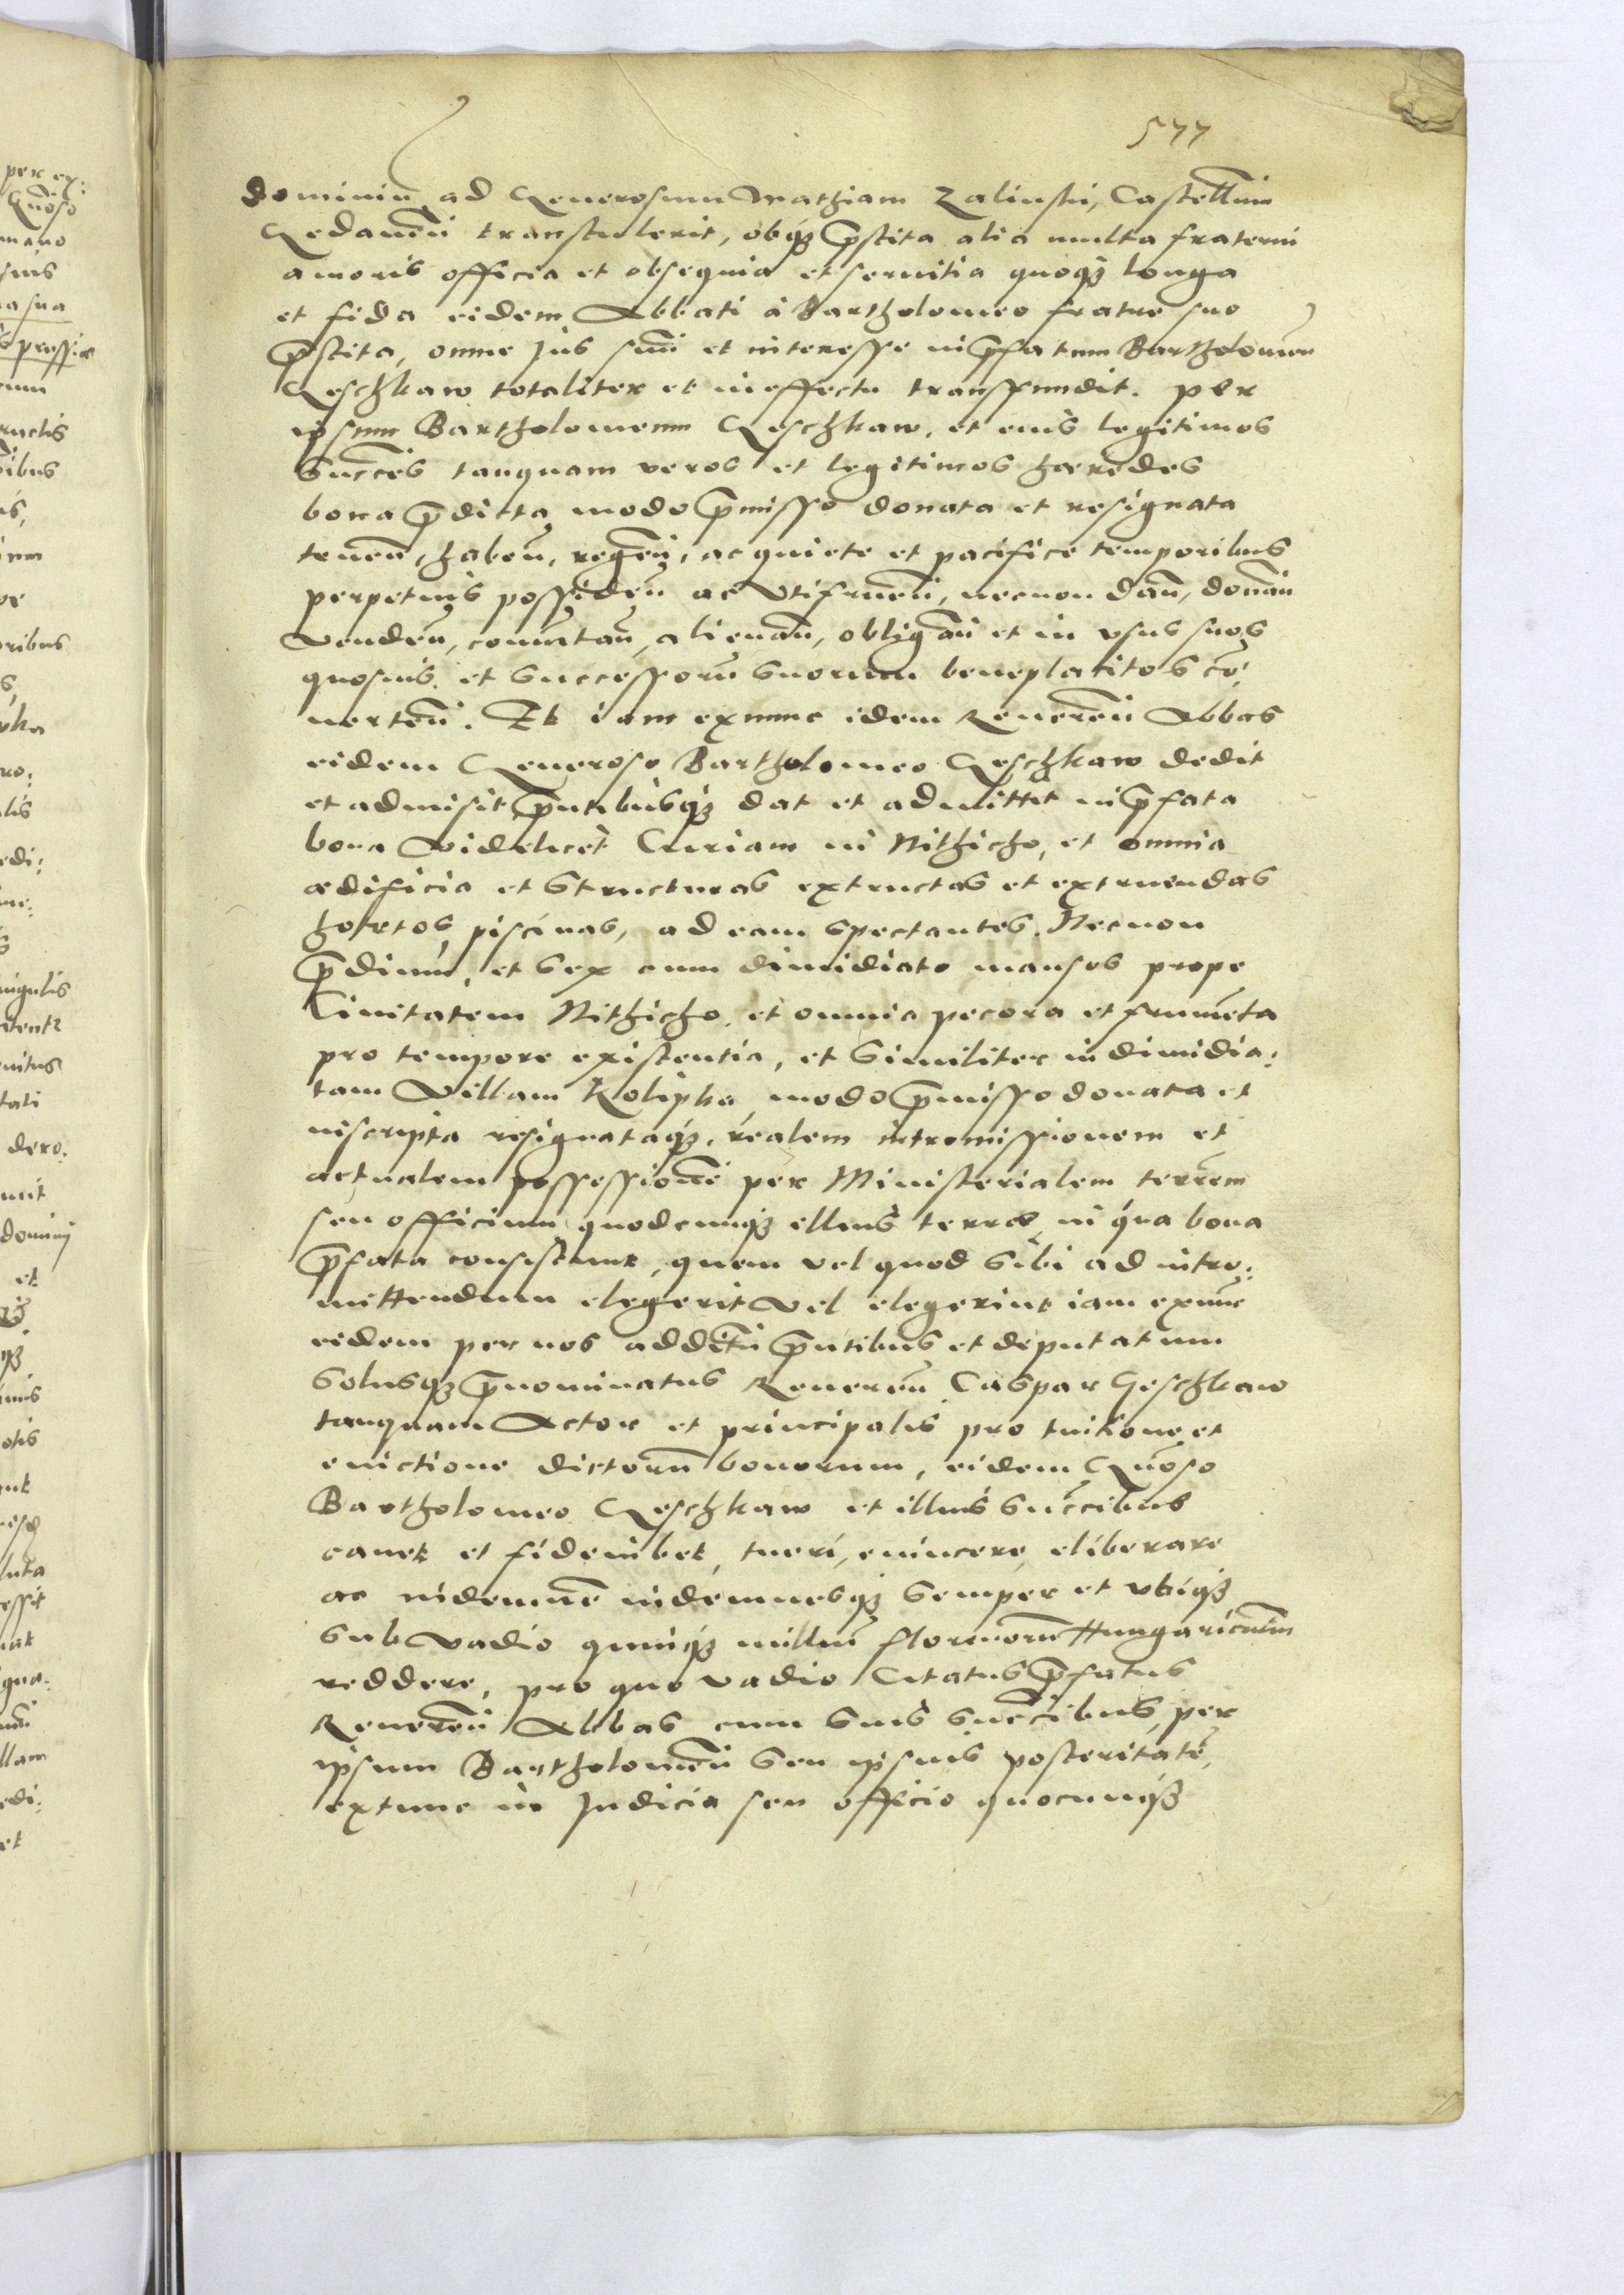 577
dominiū ad Generosum Mathiam Zalinski, Castellañ
Gedaneñ transtulerit, obqʒ p̄stita alia multa fraterni
amoris officia et obsequia et seruitia quoqʒ longa
et fida eidem Abbati à Bartholomeo fratre suo
p̄stita, omne Jus suū et interesse in p̄fatum Bartholomeū
Geschkaw totaliter et in effectu transfundit. per
ipsum Bartholomeum Geschkaw, et eius legitimos
Succēs tanquam veros et legitimos hæredes
bona p̄dicta modo p̄misso donata et resignata
teneñ, habeñ, regeñ, ac quiete et pacifice temporibus
perpetuis possideñ ac vtifrueñ, necnon dañ, donañ
vendeñ, com̄utañ, alienañ, obligañ et in vsus suos
quosuis et Successorū Suorum beneplacitos cō:
uerteñ. Et iam exnunc idem Reuereñ Abbas
eidem Generoso Bartholomeo Geschkaw dedit
et admisit p̄ntibusqʒ dat et admittit in p̄fata
bona videlicet Curiam in Nithicho, et omnia
ædificia et Structuras extructas et extruendas
hortos piscinas, ad eam spectantes. Necnon
p̄dium, et Sex cum dimidiato mansos prope
Ciuitatem Nithicho, et omnia pecora et frumēta
pro tempore existentia, et Similiter in dimidia:
tam Villam Kolipka, modo p̄misso donata et
inscripta resignataqʒ, realem intromissionem et
actualem possessionē per Ministerialem terrēm
seu officium quodcunqʒ illius terræ, in qua bona
p̄fata consistunt, quem vel quod Sibi ad intro:
mittendum elegerit vel elegerint iam exnūc
eidem per nos additū p̄ntibus et deputatum
Solusqʒ p̄nominatus Reuereñ Caspar Geschkaw
tanquam Actor et principalis pro tuitione et
euictione dictorū bonorum, eidem Gn̄oso
Bartholomeo Geschkaw et illius Succībus
cauet et fideiubet, tueri, euincere, eliberare
ac indemnē indemnesqʒ Semper et vbiqʒ
Sub vadio quinqʒ milliū florenorū Hungaricaliū
reddere, pro quo vadio Citatus p̄fatus
Reuereñ Abbas cum Suis Succībus per
ipsum Bartholomeū Seu ipsius posteritatē,
extunc in Judicio seu officio quocunqʒ